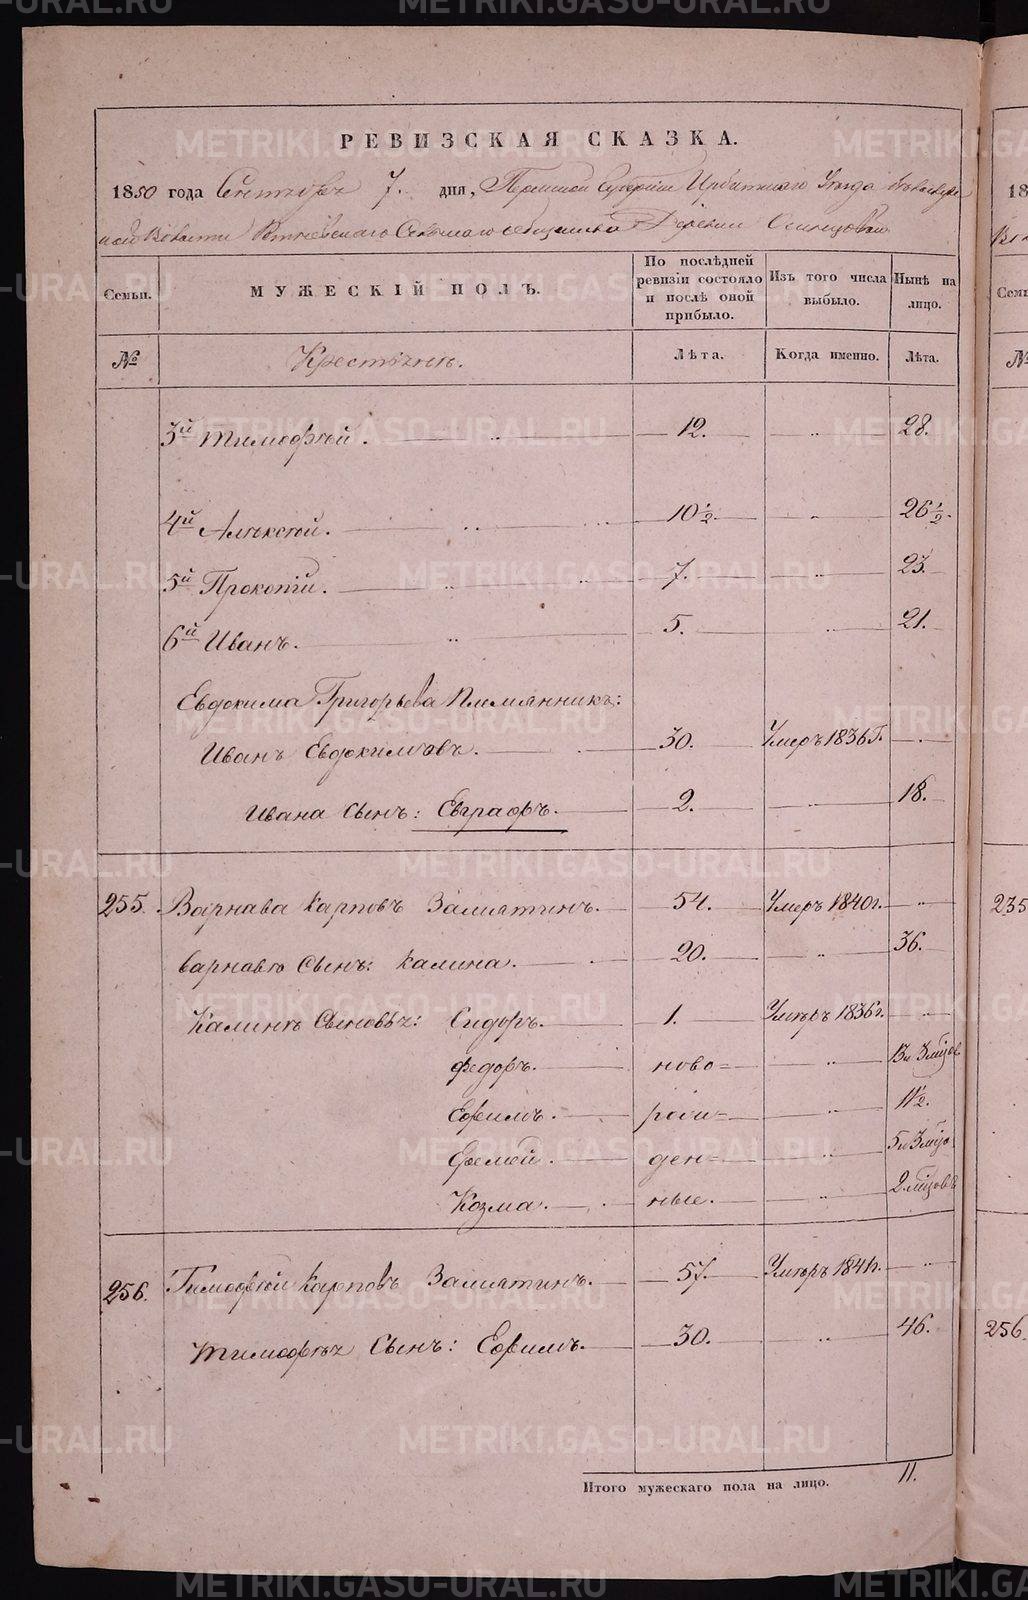 METRIKI.GASO-URAL.RU
РЕВИЗСКАЯ СКАЗКА.
1850 года Сентября 7. дня, Пермской Губернии Ирбитскаго Уезда
Волости Сельскаго общества Деревни
Семьи.
МУЖЕСКІЙ ПОЛЪ.
По послѣдней ревизіи состояло и послѣ оной прибыло.
Изъ того числа выбыло.
Нынѣ на лицо.
№ Крестьяне. Лѣта. Когда именно. Лѣта.
3й Тимофѣй. 12. 28.
4й Алѣксѣй. 10 1/2. 26 1/2.
5й Прокопій. 7. 23.
6й Иванъ. 5. 21.
Евдокима Григорьева Племянникъ:
Иванъ Евдокимовъ. 30. Умеръ 1836 г.
Ивана Сынъ: Евграфъ. 2. 18.
255. Варнава Карповъ Замятинъ. 54. Умеръ 1840 г.
Варнавы Сынъ: Калина. 20. 36.
Калины Сыновья: Сидоръ. 1. Умѣръ 1836 г.
Федоръ. ново= 13 и 3 мѣцов
Ефимъ. рож= 11 1/2.
Еремей. ден= 5 и 3 мѣцо
Козма. ные. 2 мѣцовъ
256. Тимофѣй Карповъ Замятинъ. 57. Умѣръ 1841 г.
Тимофѣя Сынъ: Ефимъ. 30. 46.
Итого мужескаго пола на лицо. 11.
18
Семьи
№
235
256.